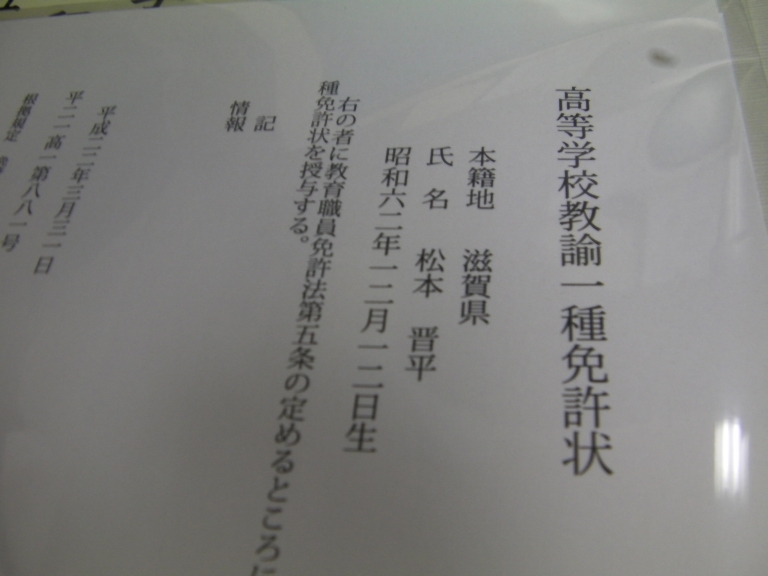 高等学校教諭一種免許状
本籍地 滋賀県
氏名 松本 晋平
昭和六二年一二月一二日生
右の者に教育職員免許法第五条の定めるところに
種免許状を授与する。
記
情報
平成二二年三月三一日
平二一高一第八八一号
根拠規定